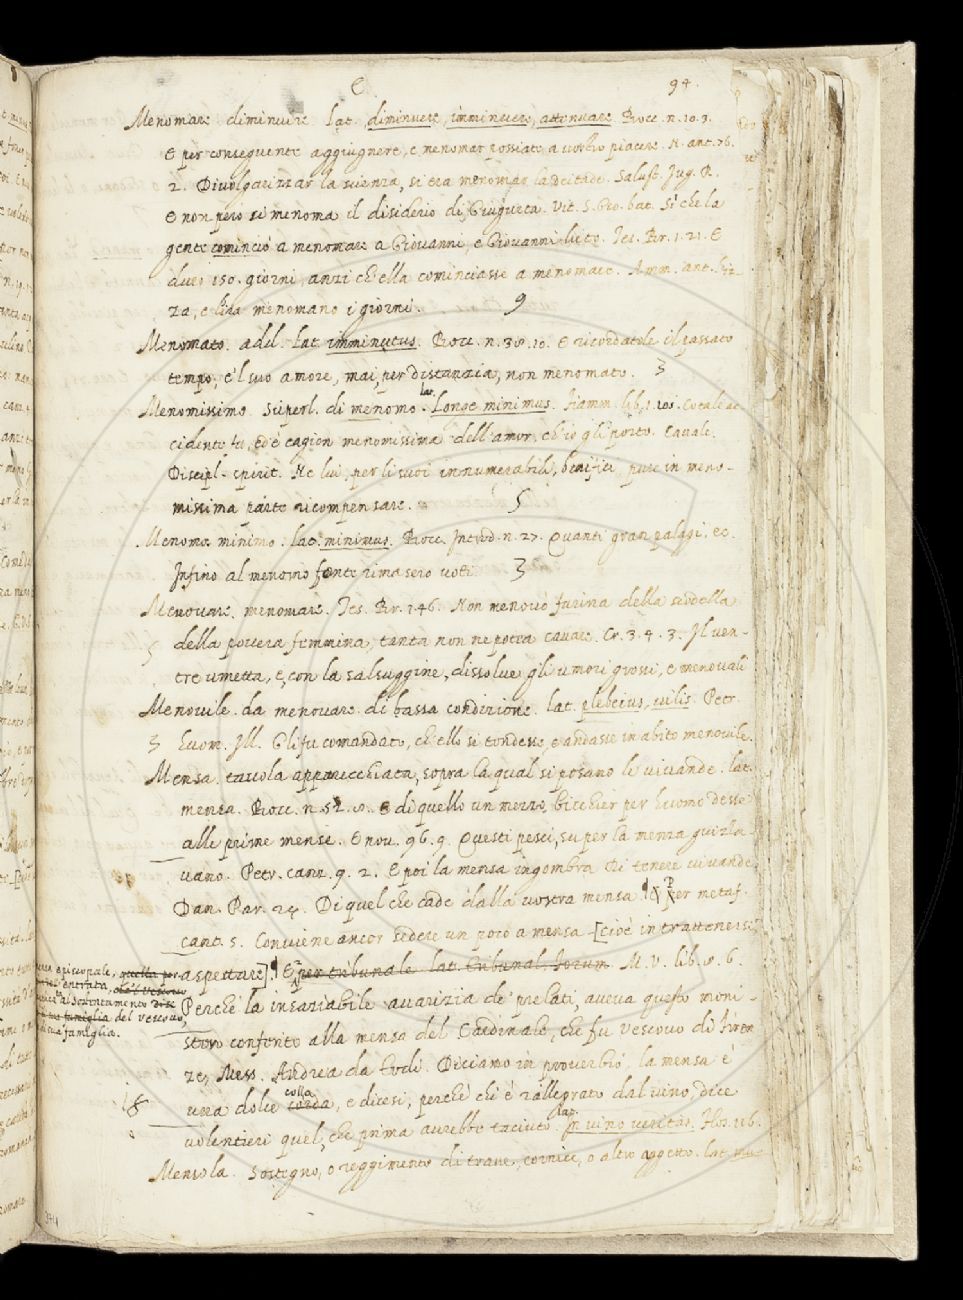 E 94.
Menomare diminuire lat. diminuere, imminuere, attenuare Bocc. n. 10. 9.
E per conseguente aggiugnere, e menomar possiate a vostro piacere. N. ant. 76.
2. Divolgarizzar la scienza, si era menomar la deitade. Salust. Jug. R.
E non però si menoma il disiderio di Giugurta. Vit. S. Gio. bat. Sì che la
gente cominciò a menomare a Giovanni, e Giovanni lieto. Tes. Br. 1. 21. E
duro 150. giorni, anzi ch'ella cominciasse a menomare. Amm. ant.
za, e l'ira menomano i giorni. 9
Menomato. add. lat. imminutus. Bocc. n. 38. 10. E ricordatole il passato
tempo, e 'l suo amore, mai, per distanzia, non menomato. 3
Menomissimo. Superl. di menomo. lat. Longe minimus. Fiamm. lib. 1. 105. Cotale ac
cidente fu, ed è cagion menomissima dell'amor, ch'io gli porto. Cavalc.
Discipl. spirit. Ne lui, per li suoi innumerabili, benificj pure in meno-
missima parte ricompensare. 5
Menomo. minimo. lat. minimus. Bocc. Introd. n. 27. Quanti gran palagi. ec.
Infino al menomo fante rimasero voti. 3
Menovare. menomare. Tes. Br. 1. 46. Non menovò farina della scodella
della povera femmina, tanta non ne potea cavare. Cr. 3. 4. 3. Il ven-
5 tre umetta, e, con la salsuggine, dissolve gli umori grossi, e menovali
Menovile. da menovare. di bassa condizione. lat. plebeius, vilis. Petr.
3 huom. Ill. Gli fu comandato, ch'ello si tondesse, e andasse in abito menovile.
Mensa. tavola apparecchiata, sopra la qual si posano le vivande. lat.
mensa. Bocc. n. 52. 8. E di quello un mezzo bicchier per huomo desse
alle prime mense. E nov. 96. 9. Questi pesci, su per la mensa guizza-
vano. Petr. canz. 9. 2. E poi la mensa ingombra Di tenere vivande
Dan. Par. 24. Di quel che cade dalla vostra mensa ¶ Per metaf.
cant. 5. Conviene ancor sedere un poco a mensa [cioè intrattenersi,
aspettare] ¶ E per tribunale lat. tribunal, forum M. V. lib. 8. 6.
mensa episcopale, quella per
entrata, del vescovo
al sostentamento
famiglia del vescovo,
sua famiglia.
Perchè la insaziabile avarizia de' prelati, aveva questo moni-
stero conferito alla mensa del Cardinale, che fu vescovo di Firen
ze, Mess. Andrea da Todi. Diciamo in proverbio. la mensa è
18 una dolce corda colla, e dicesi, perchè chi è rallegrato dal vino, dice
volentieri quel, che prima avrebbe taciuto. lat. In vino veritas. Flos. 116.
Mensola. Sostegno, o reggimento di trave, cornice, o altro aggetto. lat. mu-
344